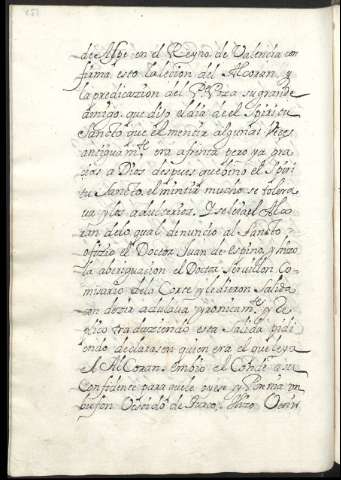 de Aspe en el Reyno de Valencia con
firma esto la leçion del Alcoran, y
la predicazion del P. Poza su grande
Amigo, que dijo el dia de el Spiritu
Sancto que el mentir algunas Vezes
antiguamte. era afrenta pero ya gra
cias a Dios despues que vino el Spiri
tu Sancto, el mentir mucho se tolera
ua y los adulterios. Y se leia el Alco
ran de lo qual denuncio al Sancto
ofizio el Doctor Juan de Espino, y hizo
la aberiguacion el Doctor Seruillon Co
misario de la Corte y le dieron salida
an dezir adulaua yronicamte. y Re
plico traduziendo esta salida pidi
endo declarasen quien era el que leya
el Alcoran. Embio el Conde a su
Confidente para que le viese y Ponia un
bufon Vestido de Turco. Hizo Venir